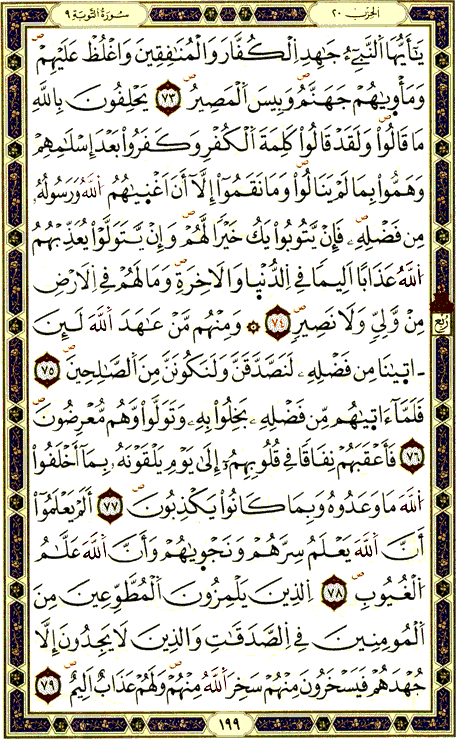 الحزب ٢٠
سورة التوبة ٩
يَٰٓأَيُّهَا اَ۬لنَّبِيٓءُ جَٰهِدِ اِ۬لْكُفَّارَ وَالْمُنَٰفِقِينَ وَاغْلُظْ عَلَيْهِمْ
وَمَأْو۪يٰهُمْ جَهَنَّمُ وَبِيسَ اَ۬لْمَصِيرُ ٧٣ يَحْلِفُونَ بِاللَّهِ
مَا قَالُواْ وَلَقَدْ قَالُواْ كَلِمَةَ اَ۬لْكُفْرِ وَكَفَرُواْ بَعْدَ إِسْلَٰمِهِمْ
وَهَمُّواْ بِمَا لَمْ يَنَالُواْ وَمَا نَقَمُوٓاْ إِلَّآ أَنْ أَغْن۪يٰهُمُ اُ۬للَّهُ وَرَسُولُهُۥ
مِن فَضْلِهِۦ فَإِنْ يَّتُوبُواْ يَكُ خَيْراٗ لَّهُمْ وَإِنْ يَّتَوَلَّوْاْ يُعَذِّبْهُمُ
اُ۬للَّهُ عَذَاباً اَلِيماٗ فِي اِ۬لدُّنْي۪ا وَالَاخِرَةِ وَمَا لَهُمْ فِي اِ۬لَارْضِ
مِنْ وَّلِيّٖ وَلَا نَصِيرٖ ٧٤ ۞ وَمِنْهُم مَّنْ عَٰهَدَ اَ۬للَّهَ لَئِنَ
اٰت۪يٰنَا مِن فَضْلِهِۦ لَنَصَّدَّقَنَّ وَلَنَكُونَنَّ مِنَ اَ۬لصَّٰلِحِينَ ٧٥
فَلَمَّآ ءَات۪يٰهُم مِّن فَضْلِهِۦ بَخِلُواْ بِهِۦ وَتَوَلَّواْ وَّهُم مُّعْرِضُونَ
٧٦ فَأَعْقَبَهُمْ نِفَاقاٗ فِي قُلُوبِهِمُۥٓ إِلَىٰ يَوْمِ يَلْقَوْنَهُۥ بِمَآ أَخْلَفُواْ
اُ۬للَّهَ مَا وَعَدُوهُ وَبِمَا كَانُواْ يَكْذِبُونَ ٧٧ أَلَمْ يَعْلَمُوٓاْ
أَنَّ اَ۬للَّهَ يَعْلَمُ سِرَّهُمْ وَنَجْو۪يٰهُمْ وَأَنَّ اَ۬للَّهَ عَلَّٰمُ
اُ۬لْغُيُوبِ ٧٨ اِ۬لذِينَ يَلْمِزُونَ اَ۬لْمُطَّوِّعِينَ مِنَ
اَ۬لْمُومِنِينَ فِي اِ۬لصَّدَقَٰتِ وَالذِينَ لَا يَجِدُونَ إِلَّا
جُهْدَهُمْ فَيَسْخَرُونَ مِنْهُمْ سَخِرَ اَ۬للَّهُ مِنْهُمْ وَلَهُمْ عَذَابٌ اَلِيمٌ ٧٩
ربع
١٩٩